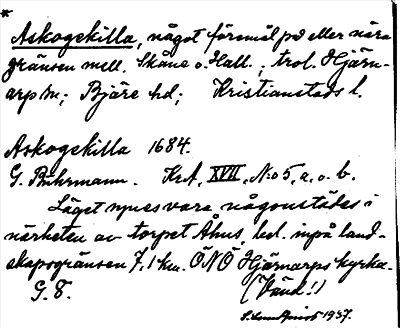 *
Askogekilla, något föremål på eller nära
gränsen mell. Skåne o. Hall.; trol. Hjärn-
arp sn; Bjäre hd; Kristianstads l.
Askogekilla 1684.
G. Buhrmann. KrA, XVII, No 5, a. o. b.
Läget synes vara någonstädes i
närheten av torpet Åhus, bel. inpå land-
skapsgränsen 7,1 km. ÖNÖ Hjärnarps kyrka.
G. B. (Vänd!)
1937.